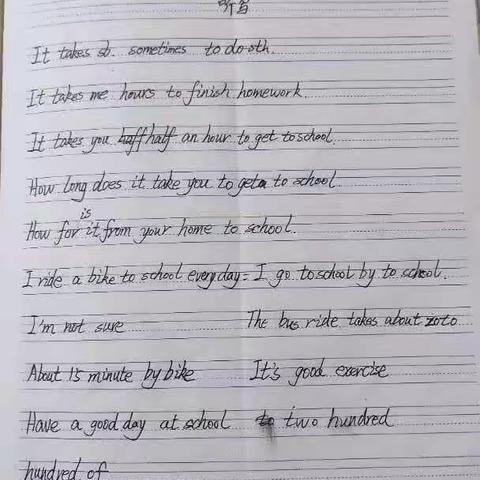 听写
It takes sb. sometimes to do sth.
It takes me hours to finish homework.
It takes you half an hour to get to school.
How long does it take you to get to school.
How for is it from your home to school.
I ride a bike to school everyday = I go to school by to school.
I'm not sure The bus ride takes about
About 15 minute by bike It's good exercise
Have a good day at school two hundred
hundred of